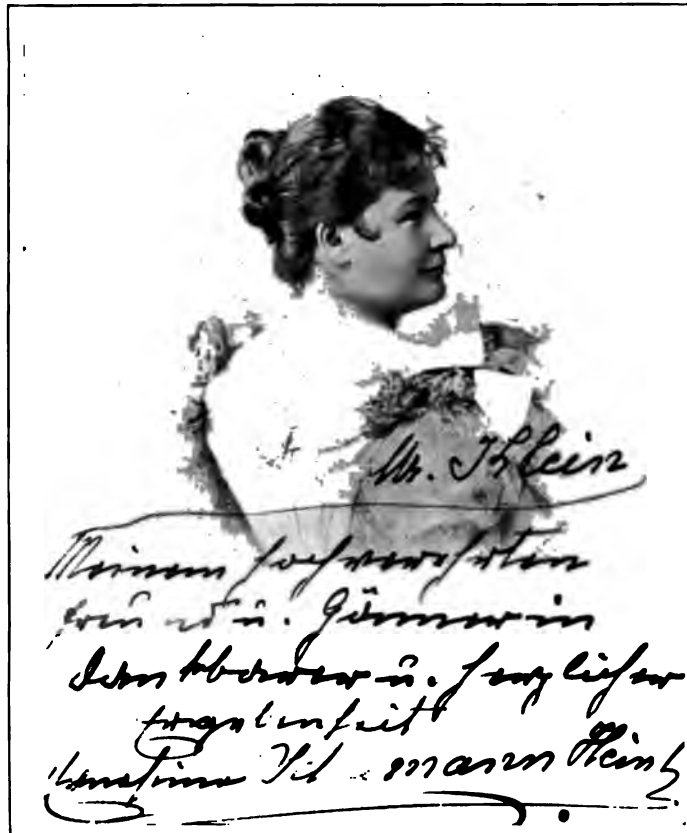 Mr. Klein
Meinem hochverehrten
Freund u. Gönner in
dankbarer u. herzlicher
Ergebenheit
Ernestine mann Heink